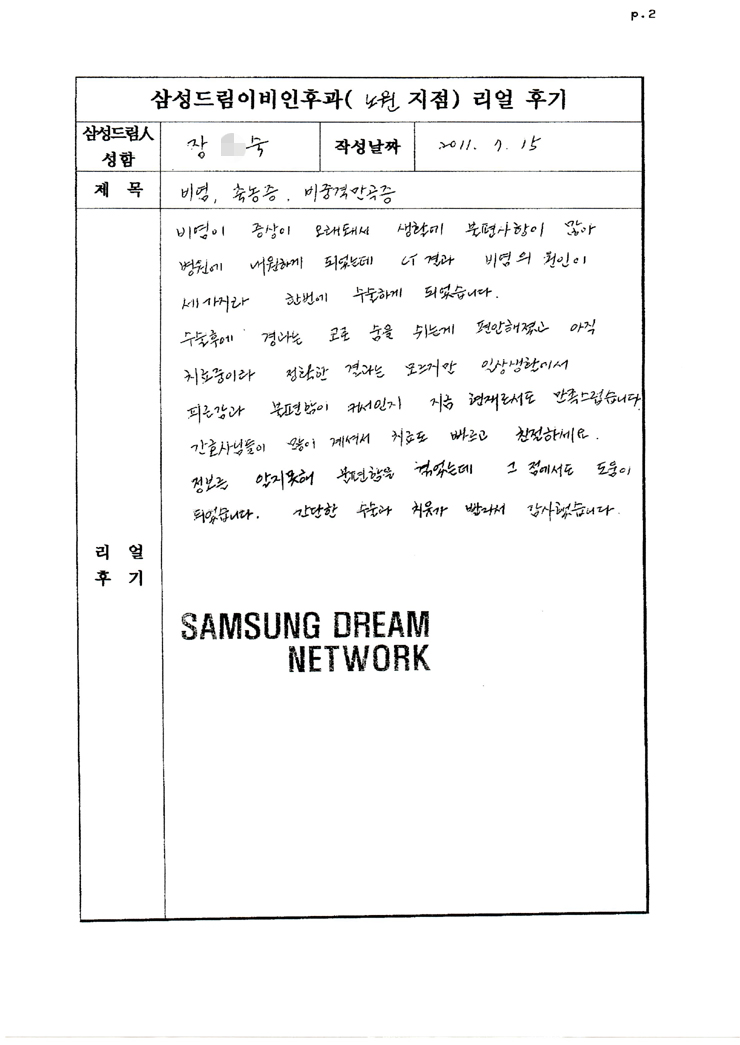 p.2
삼성드림이비인후과( 노원 지점) 리얼 후기
삼성드림人 성함
장 숙
작성날짜
2011. 7. 15
제 목
비염, 축농증, 비중격만곡증
리 얼 후 기
비염이 증상이 오래돼서 생활에 불편사항이 많아
병원에 내원하게 되었는데 CT 결과 비염의 원인이
세가지라 한번에 수술하게 되었습니다.
수술후에 경과는 코로 숨을 쉬는게 편안해졌고 아직
치료중이라 정확한 결과는 모르지만 일상생활에서
피곤감과 불편함이 커서인지 지금 현재로서도 만족스럽습니다
간호사님들이 많이 계셔서 치료도 빠르고 친절하세요.
정보를 알지못해 불편함을 겪었는데 그 점에서도 도움이
되었습니다. 간단한 수술과 치유가 빨라서 감사했습니다.
SAMSUNG DREAM
NETWORK